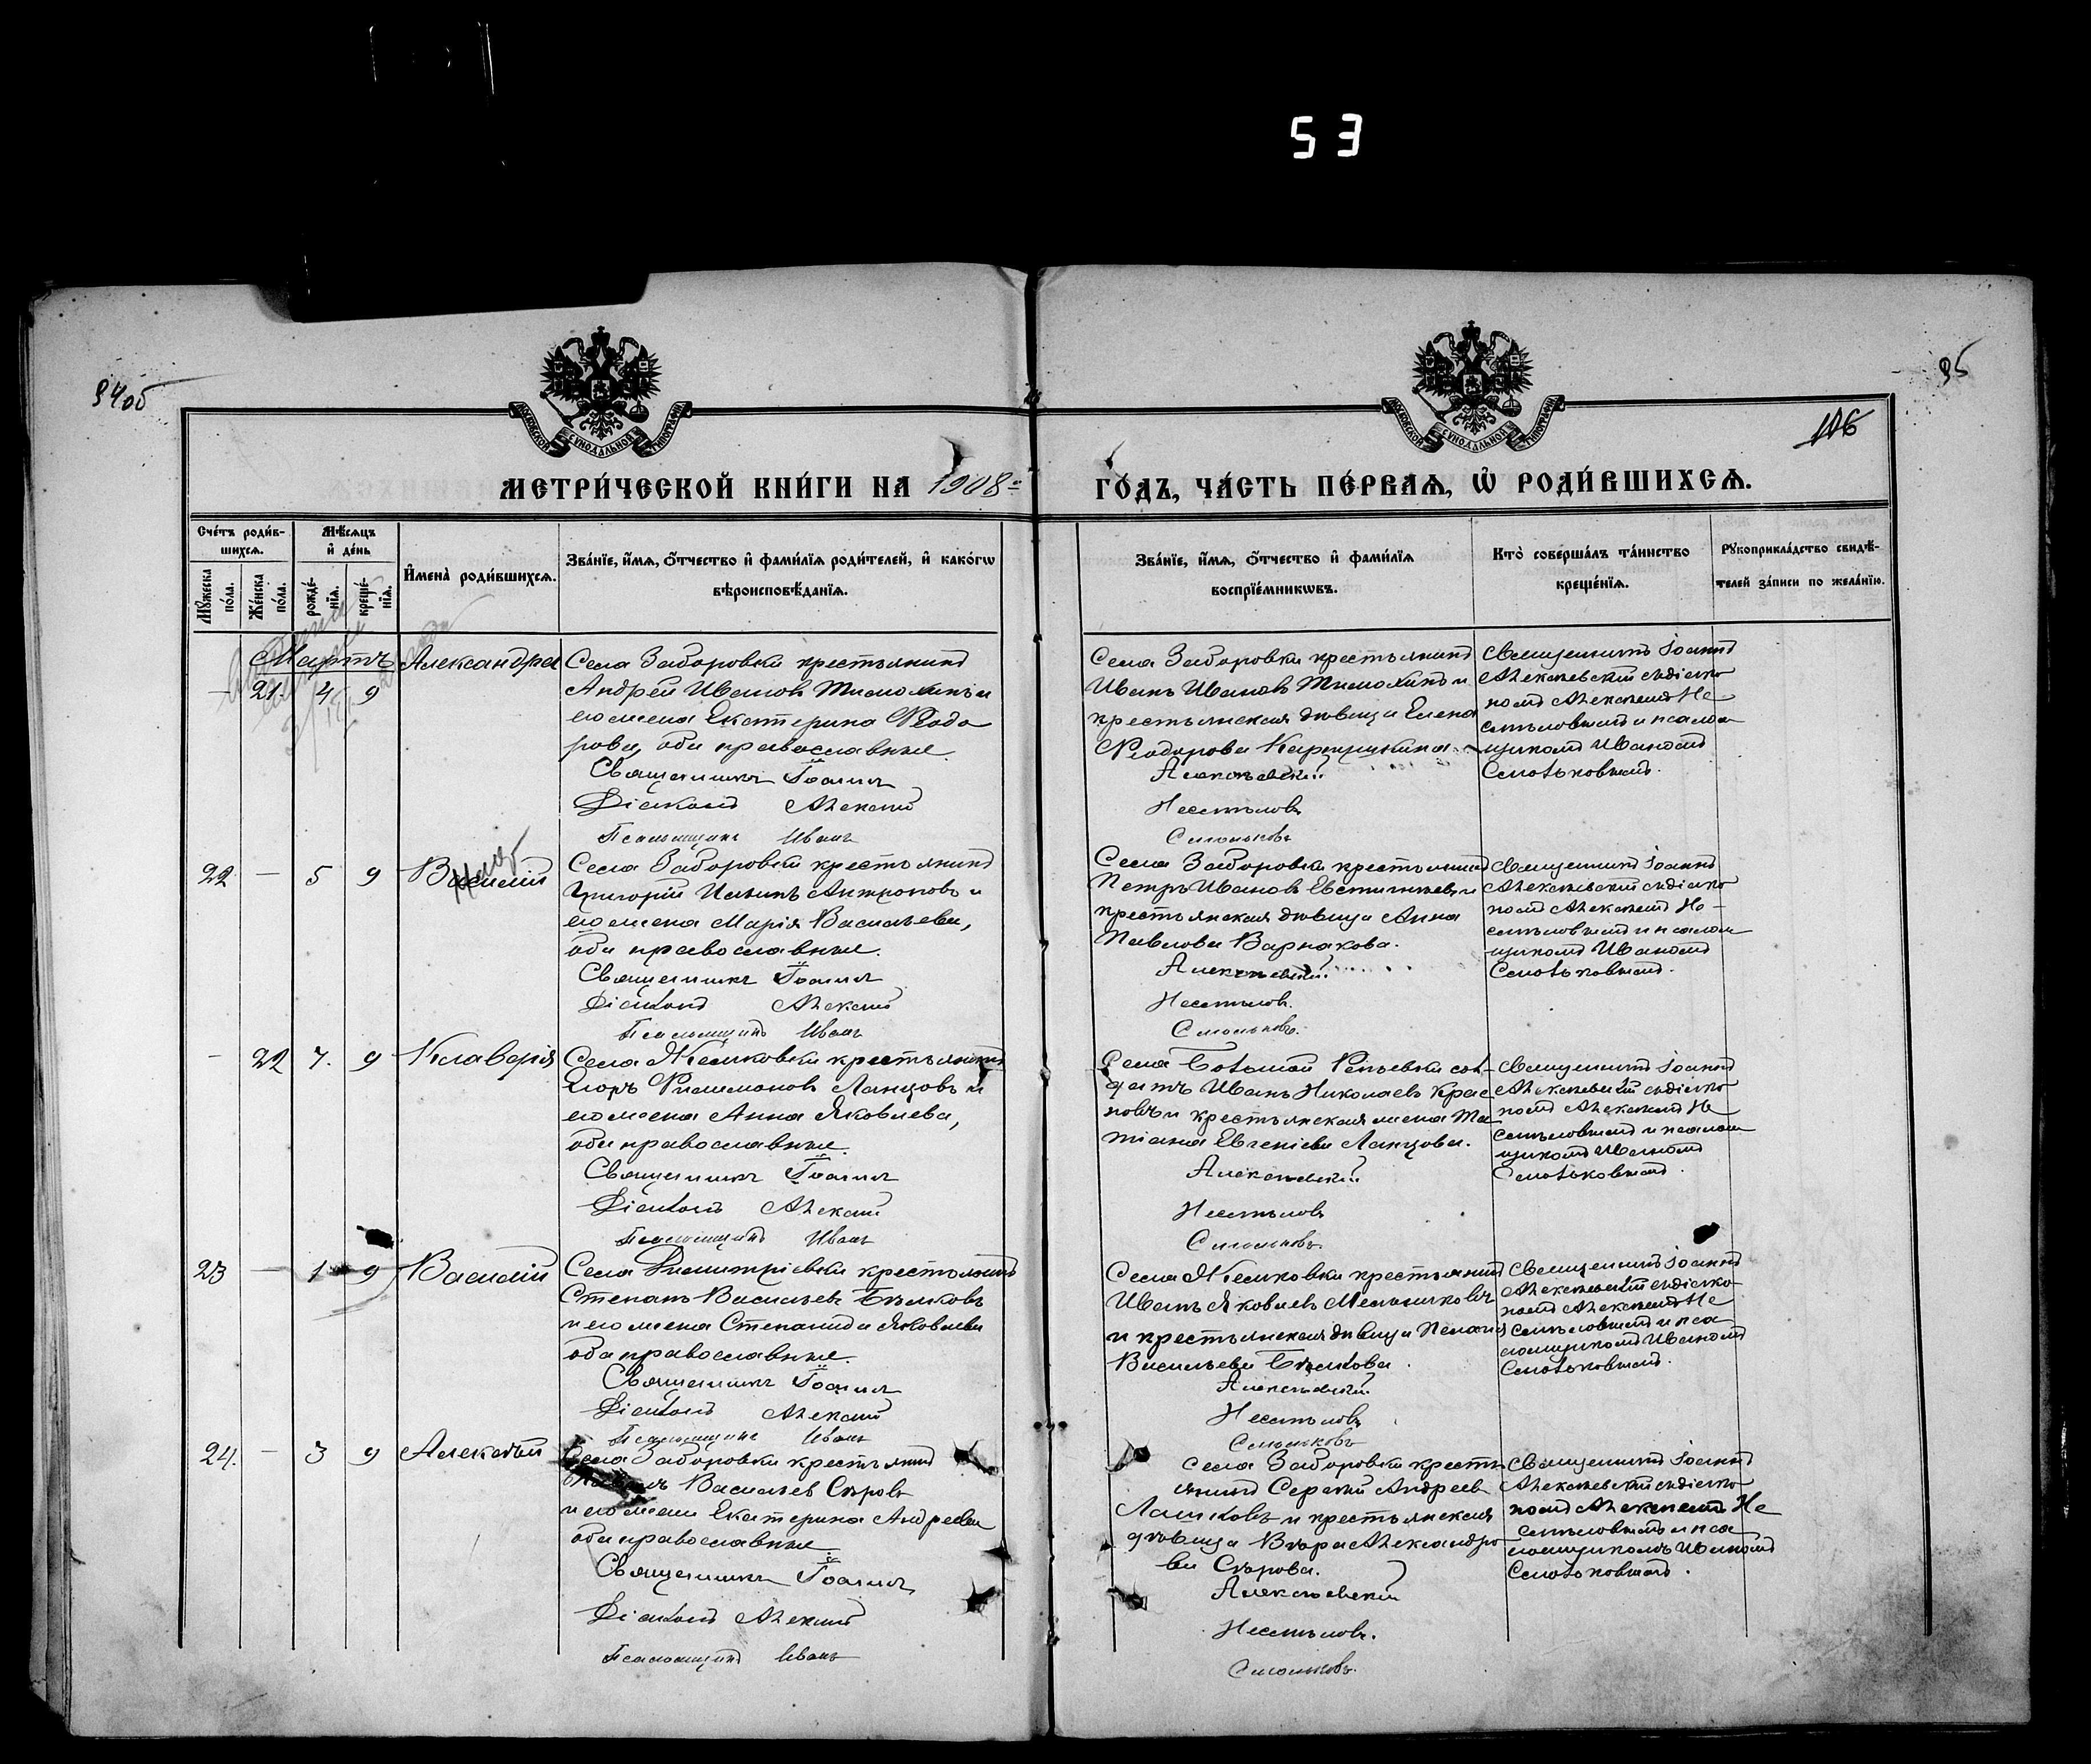 53
34об
35
106
МОСКОВСКОЙ СУНОДАЛЬНОЙ ТИПОГРАФІИ
МОСКОВСКОЙ СУНОДАЛЬНОЙ ТИПОГРАФІИ
МЕТРИ́ЧЕСКОЙ КНИ́ГИ НА 1908 ГО́ДЪ, ЧА́СТЬ ПЕ́РВАѦ, Ѡ҆ РОДИ́ВШИХСѦ.
Сче́тъ роди́в-
шихсѧ.
Мꙋ́жеска по́ла.
Же́нска по́ла.
Мѣ́сѧцъ и҆ де́нь
рожде́-
нїѧ.
креще́-
нїѧ.
И҆мена̀ роди́вшихсѧ.
Зва́нїе, и҆́мѧ, ѻ҆́тчество и҆ фами́лїѧ роди́телей, и҆ како́гѡ
вѣроисповѣ́данїѧ.
Зва́нїе, и҆́мѧ, ѻ҆́тчество и҆ фами́лїѧ
воспрїе́мникѡвъ.
Кто̀ соверша́лъ та́инство
креще́нїѧ.
Рꙋкоприкла́дство свидѣ́-
телей за́писи по жела́нїю.
Мартъ
- 21. 4 9
Александра
Села Заборовки крестьянинъ
Андрей Ивановъ Тимохинъ и
его жена Екатерина Ѳеодо
рова, оба православные.
Священникъ Іоаннъ
Діаконъ Алексій
Псаломщикъ Иванъ
Села Заборовки крестьянинъ
Иванъ Ивановъ Тимохинъ и
крестьянская дѣвица Елена
Ѳеодорова
Алексѣевскій
Несмѣловъ
Смольковъ
Священникъ Іоаннъ
Алексѣевскій съ діако
номъ Алексіемъ Не
смѣловымъ и псалом
щикомъ Иваномъ
Смольковымъ.
22 — 5 9
Василій
Села Заборовки крестьянинъ
Григорій Ильинъ Антюповъ и
его жена Марія Васильева,
оба православные.
Священникъ Іоаннъ
Діаконъ Алексій
Псаломщикъ Иванъ
Села Заборовки крестьянинъ
Петръ Ивановъ Евстигнѣевъ и
крестьянская дѣвица Анна
Павлова Варнакова.
Алексѣевскій
Несмѣловъ.
Смольковъ.
Священникъ Іоаннъ
Алексѣевскій съ діако
номъ Алексіемъ Не-
смѣловымъ и псалом
щикомъ Иваномъ
Смольковымъ.
- 22 7. 9
Клавдія
Села Жемковки крестьянинъ
Егоръ Филимоновъ Ланцовъ и
его жена Анна Яковлева,
оба православные.
Священникъ Іоаннъ
Діаконъ Алексій
Псаломщикъ Иванъ
Села Большой Рѣпьевки сол-
датъ Иванъ Николаевъ Крас
новъ и крестьянская жена Та
тіана Евгеніева Ланцова.
Алексѣевскій
Несмѣловъ
Смольковъ.
Священникъ Іоаннъ
Алексѣевскій съ діако
номъ Алексіемъ Не
смѣловымъ и псалом
щикомъ Иваномъ
Смольковымъ.
23 — 1 9
Василій
Села Димитріевки крестьянинъ
Степанъ Васильевъ Бѣлковъ
и его жена Степанида Яковлева
оба православные.
Священникъ Іоаннъ
Діаконъ Алексій
Псаломщикъ Иванъ
Села Жемковки крестьянинъ
Иванъ Яковлевъ Мельниковъ
и крестьянская дѣвица Пелагія
Васильева Бѣлкова.
Алексѣевскій.
Несмѣловъ
Смольковъ
Священникъ Іоаннъ
Алексѣевскій съ діако
номъ Алексіемъ Не
смѣловымъ и пса
ломщикомъ Иваномъ
Смольковымъ.
24. — 3 9
Алексѣй
Села Заборовки крестьянинъ
Васильевъ Сѣровъ
и его жена Екатерина Андреева
оба православные
Священникъ Іоаннъ
Діаконъ Алексій
Псаломщикъ Иванъ
Села Заборовки кресть
янинъ Сергѣй Андреевъ
Лашковъ и крестьянская
дѣвица Вѣра Александро
ва Сѣрова.
Алексѣевскій
Несмѣловъ.
Смольковъ.
Священникъ Іоаннъ
Алексѣевскій съ діако
номъ Алексіемъ Не
смѣловымъ и пса
ломщикомъ Иваномъ
Смольковымъ.